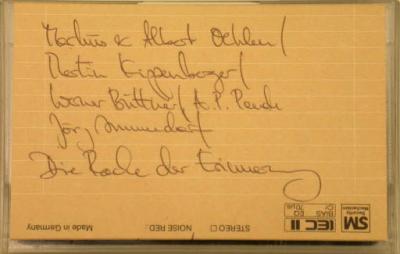 Markus & Albert Oehlen/
Martin Kippenberger/
Werner Büttner/ A.P. Penck
Jörg Immendorf
Die Rache der Erinnerung
SM Security Mechanism
IEC II
BIAS Cr
EQ 70µs
STEREO
NOISE RED.:
Made in Germany